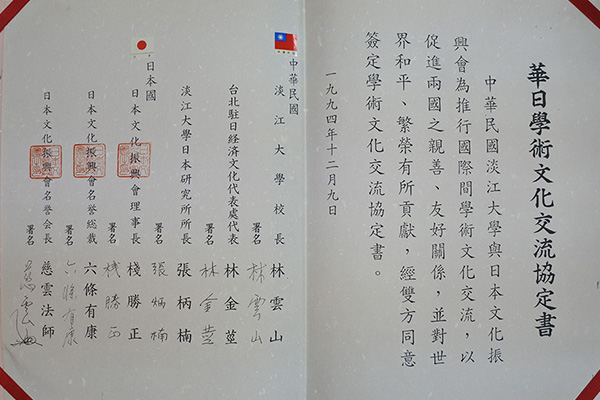 華日學術文化交流協定書
中華民國淡江大學與日本文化振
興會為推行國際間學術文化交流，以
促進兩國之親善、友好關係，並對世
界和平、繁榮有所貢獻，經雙方同意
簽定學術文化交流協定書。
一九九四年十二月九日
中華民國
淡江大學校長 林雲山
署名 林雲山
台北駐日経済文化代表處代表 林金莖
署名 林金莖
淡江大學日本研究所所長 張柄楠
署名 張炳楠
日本國
日本文化振興會理事長 棧勝正
署名 棧勝正
日本文化振興會名誉総裁 六條有康
署名 六條有康
日本文化振興會名誉会長 慈雲法師
署名 慈雲